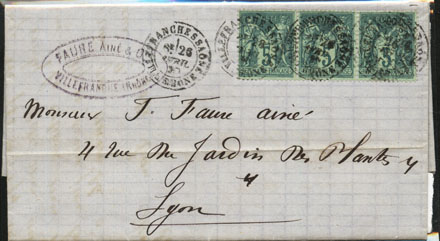 FAURE Ainé & C
VILLEFRANCHE (RHÔNE)
VILLEFRANCHE-S-SAÔNE
26
AVRIL
RHONE
5
5
5
Monsieur F. Faure ainé
4 Rue Du Jardin Des Plantes 4
"
Lyon